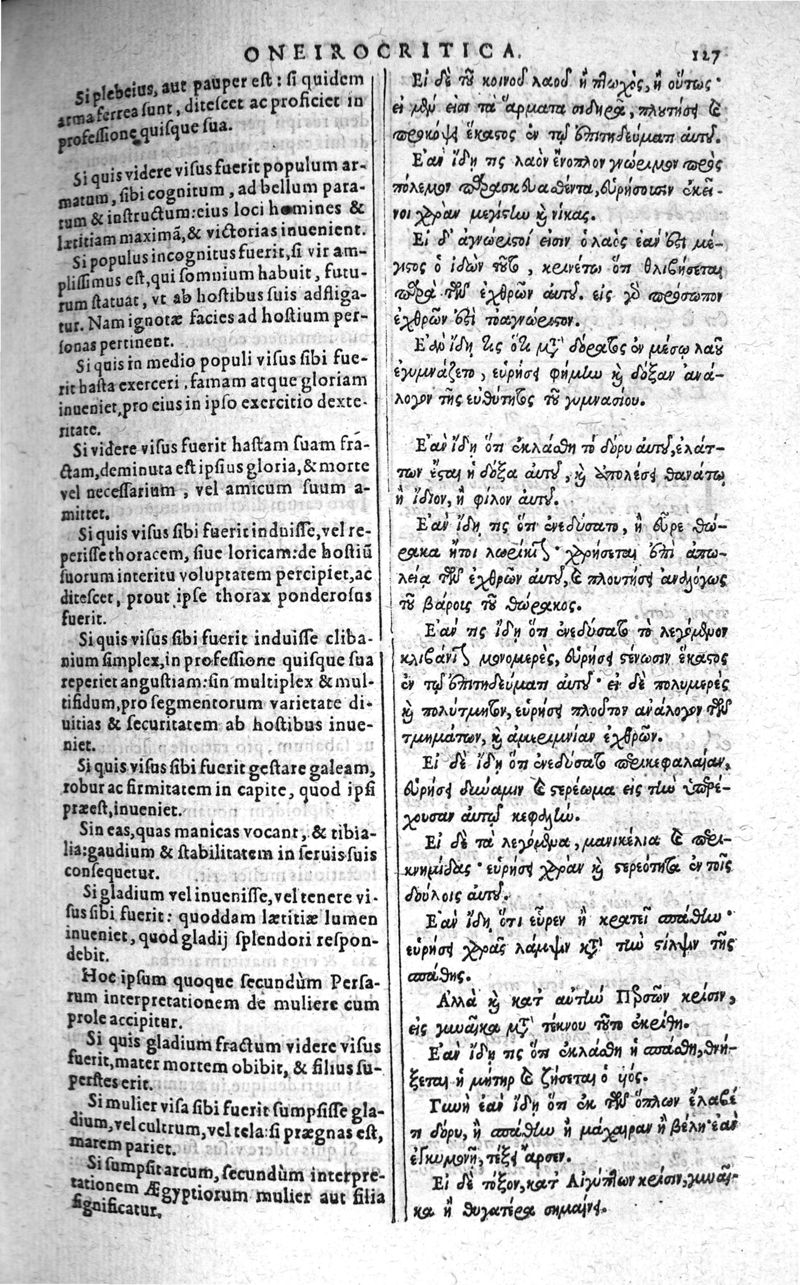 ONEIROCRITICA. 127
Si plebeius, aut pauper est: si quidem
arma ferrea sunt, ditescet ac proficiet in
professione quisque sua.
Si quis videre visus fuerit populum ar-
matum, sibi cognitum, ad bellum para-
tum & instructum: eius loci homines &
lætitiam maximã, & victorias inuenient.
Si populus incognitus fuerit, si vir am-
plissimus est, qui somnium habuit, futu-
rum statuat, vt ab hostibus suis adfliga-
tur. Nam ignotæ facies ad hostium per-
sonas pertinent.
Si quis in medio populi visus sibi fue-
rit hasta exerceri, famam atque gloriam
inueniet, pro eius in ipso exercitio dexte-
ritate.
Si videre visus fuerit hastam suam fra-
ctam, deminuta est ipsius gloria, & morte
vel necessarium, vel amicum suum a-
mittet.
Si quis visus sibi fuerit induisse, vel re-
perisse thoracem, siue loricam: de hostiũ
suorum interitu voluptatem percipiet, ac
ditescet, prout ipse thorax ponderosus
fuerit.
Si quis visus sibi fuerit induisse cliba-
nium simplex, in professione quisque sua
reperiet angustiam: sin multiplex & mul-
tifidum, pro segmentorum varietate di-
uitias & securitatem ab hostibus inue-
niet.
Si quis visus sibi fuerit gestare galeam,
robur ac firmitatem in capite, quod ipsi
præest, inueniet.
Sin eas, quas manicas vocant, & tibia-
lia: gaudium & stabilitatem in seruis suis
consequetur.
Si gladium vel inuenisse, vel tenere vi-
sus sibi fuerit: quoddam lætitiæ lumen
inueniet, quod gladij splendori respon-
debit.
Hoc ipsum quoque secundùm Persa-
rum interpretationem de muliere cum
prole accipitur.
Si quis gladium fractum videre visus
fuerit, mater mortem obibit, & filius su-
perstes erit.
Si mulier visa sibi fuerit sumpsisse gla-
dium, vel cultrum, vel tela: si prægnas est,
marem pariet.
Si sumpsit arcum, secundùm interpre-
tationem Ægyptiorum mulier aut filia
significatur.
Εἰ δὲ τοῦ κοινοῦ λαοῦ ἢ πτωχὸς, ἢ οὕτως·
εἰ μὲν εἰσὶ τὰ ἅρματα σιδηρᾶ, πλουτήσει καὶ
προκόψει ἕκαστος ἐν τῷ ἐπιτηδεύματι αὐτοῦ.
Ἐὰν ἴδῃ τις λαὸν ἔνοπλον γνώριμον πρὸς
πόλεμον παρασκευασθέντα, εὑρήσουσιν ἐκεῖ-
νοι χαρὰν μεγίστην καὶ νίκας.
Εἰ δ' ἀγνώριστοί εἰσιν ὁ λαὸς ἐὰν ἐστὶ μέ-
γιστος ὁ ἰδὼν τοῦτο, κρινέτω ὅτι θλιβήσεται
παρὰ τῶν ἐχθρῶν αὐτοῦ. εἰς γὰρ πρόσωπον
ἐχθρῶν ἐστὶ τὸ ἀγνώριστον.
Ἐὰν ἴδῃ τις ὅτι μετὰ δόρατος ἐν μέσῳ λαοῦ
ἐγυμνάζετο, εὑρήσει φήμην καὶ δόξαν ἀνά-
λογον τῆς εὐθύτητος τοῦ γυμνασίου.
Ἐὰν ἴδῃ ὅτι ἐκλάσθη τὸ δόρυ αὐτοῦ, ἐλάτ-
των ἔσται ἡ δόξα αὐτοῦ, καὶ ἀπολέσει θανάτῳ
ἢ ἴδιον, ἢ φίλον αὐτοῦ.
Ἐὰν ἴδῃ τις ὅτι ἐνεδύσατο, ἢ εὗρε θώ-
ρακα ἤτοι λωρίκιον· χαρήσεται ἐπὶ ἀπω-
λείᾳ τῶν ἐχθρῶν αὐτοῦ, καὶ πλουτήσει ἀναλόγως
τοῦ βάρους τοῦ θώρακος.
Ἐάν τις ἴδῃ ὅτι ἐνεδύσατο τὸ λεγόμενον
κλιβάνιον μονομερὲς, εὑρήσει στένωσιν ἕκαστος
ἐν τῷ ἐπιτηδεύματι αὐτοῦ· εἰ δὲ πολυμερὲς
καὶ πολύτμητον, εὑρήσει πλοῦτον ἀνάλογον τῶν
τμημάτων, καὶ ἀμεριμνίαν ἐχθρῶν.
Εἰ δὲ ἴδῃ ὅτι ἐνεδύσατο περικεφαλαίαν,
εὑρήσει δύναμιν καὶ στερέωμα εἰς τὴν ὑπερέ-
χουσαν αὐτῷ κεφαλήν.
Εἰ δὲ τὰ λεγόμενα, μανικέλια καὶ περι-
κνημίδας· εὑρήσει χαρὰν καὶ στερεότητα ἐν τοῖς
δούλοις αὐτοῦ.
Ἐὰν ἴδῃ ὅτι εὗρεν ἢ κρατεῖ σπάθην·
εὑρήσει χαρᾶς λάμψιν κατὰ τὴν στίλψιν τῆς
σπάθης.
Ἀλλὰ καὶ κατ' αὐτὴν Περσῶν κρίσιν,
εἰς γυναῖκα μετὰ τέκνου τοῦτο ἐκρίθη.
Ἐὰν ἴδῃ τις ὅτι ἐκλάσθη ἡ σπάθη, θνή-
ξεται ἡ μήτηρ καὶ ζήσεται ὁ υἱός.
Γυνὴ ἐὰν ἴδῃ ὅτι ἐκ τῶν ὅπλων ἔλαβέ
τι δόρυ, ἢ σπάθην ἢ μάχαιραν ἢ βέλη· ἐὰν
ἐγκυμονῇ, τέξει ἄρσεν.
Εἰ δὲ τόξον, κατ' Αἰγυπτίων κρίσιν, γυναῖ-
κα ἢ θυγατέρα σημαίνει.